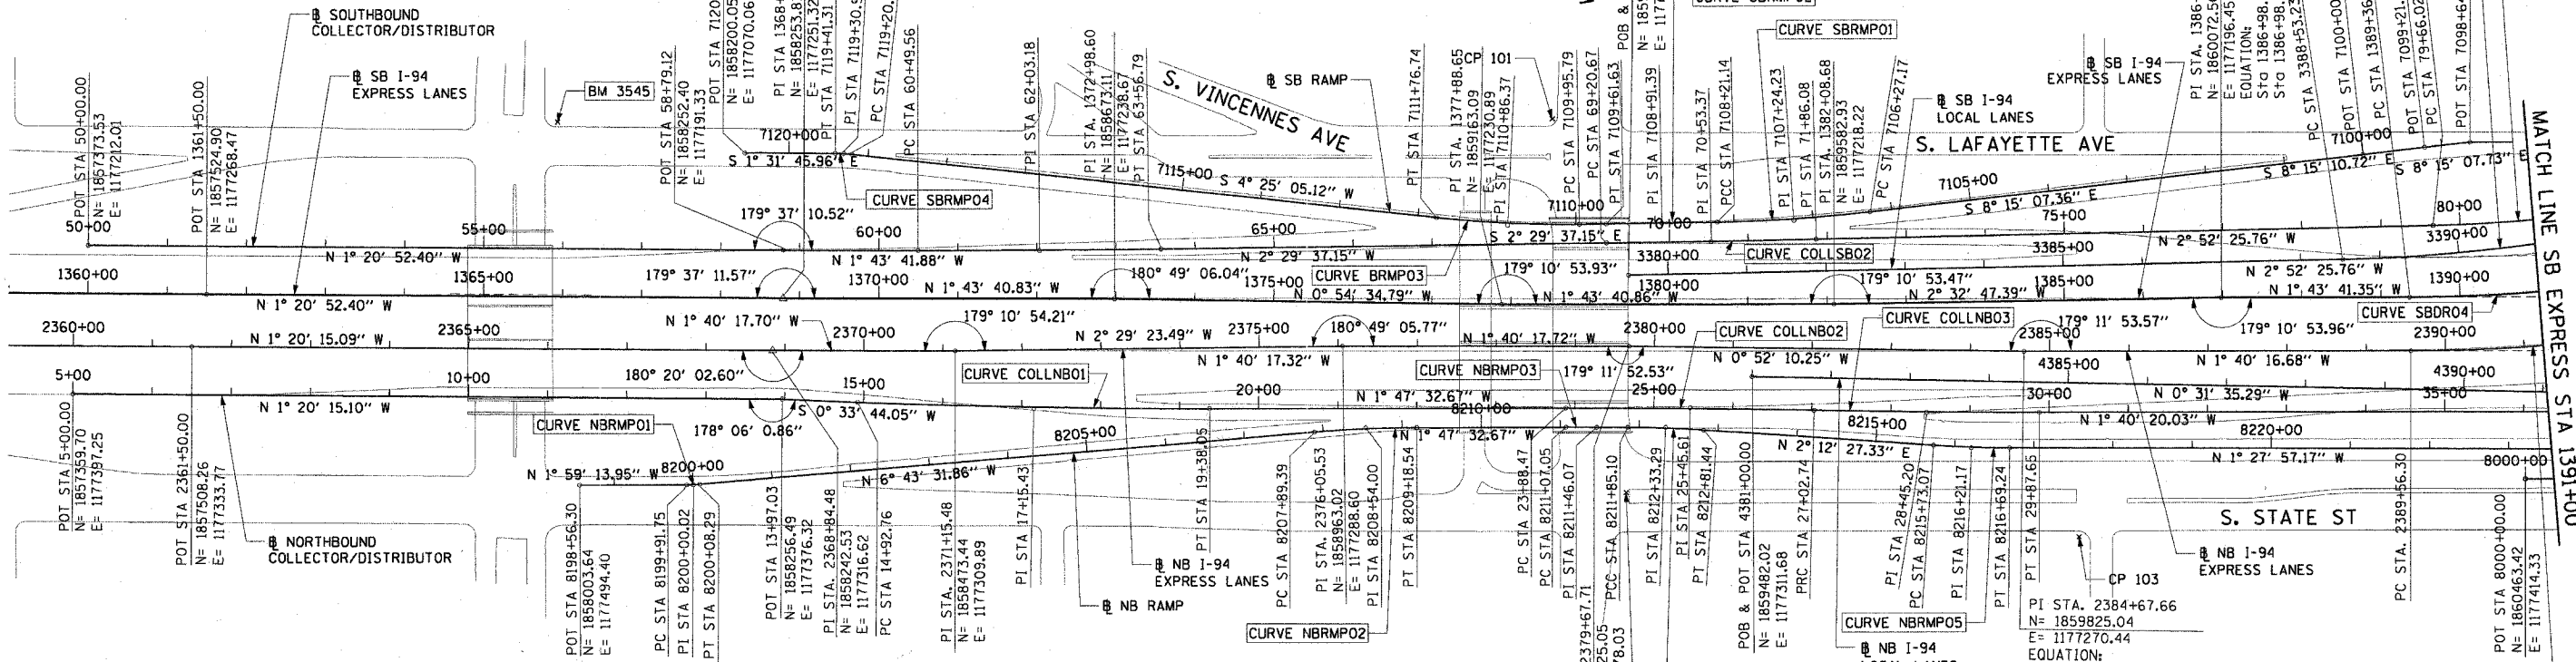 ℄ SOUTHBOUND
COLLECTOR/DISTRIBUTOR
℄ SB I-94
EXPRESS LANES
BM 3545
POT STA 50+00.00
N= 1857373.53
E= 1177212.01
POT STA 1361+50.00
N= 1857524.90
E= 1177268.47
POT STA 58+79.12
N= 1858252.40
E= 1177191.33
POT STA 7120
N= 1858200.05
E= 1177070.06
PI STA 1368+
N= 1858253.8
E= 1177251.32
PT STA 7119+41.31
PI STA 7119+30.9
PC STA 7119+20.
PC STA 60+49.56
PI STA 62+03.18
PI STA. 1372+98.60
N= 1858673.11
E= 1177238.67
PT STA 63+56.79
S. VINCENNES AVE
℄ SB RAMP
PT STA 7111+76.74
PI STA. 1377+88.65
N= 1859163.09
E= 1177230.89
PI STA 7110+86.37
CP 101
PC STA 7109+95.79
PC STA 69+20.67
PT STA 7109+61.63
POB &
N= 1859
E= 117
PI STA 7108+91.39
PI STA 70+53.37
PCC STA 7108+21.14
CURVE SBRMP01
PI STA 7107+24.23
PT STA 71+86.08
PI STA. 1382+08.68
N= 1859582.93
E= 1177218.22
PC STA 7106+27.17
℄ SB I-94
LOCAL LANES
S. LAFAYETTE AVE
℄ SB I-94
EXPRESS LANES
PI STA. 1386
N= 1860072.5
E= 1177196.45
EQUATION:
Sta 1386+98.
Sta 1386+98.
PC STA 3388+53.23
POT STA 7100+00
PC STA 1389+36
POT STA 7099+21.
PC STA 79+66.02
POT STA 7098+6
MATCH LINE SB EXPRESS STA 1391+00
7120+00
S 1° 31' 45.96" E
CURVE SBRMP04
7115+00
S 4° 25' 05.12" W
7110+00
S 2° 29' 37.15" E
7105+00
S 8° 15' 07.36" E
7100+00
S 8° 15' 10.72" E
S 8° 15' 07.73" E
50+00
55+00
60+00
65+00
70+00
75+00
80+00
179° 37' 10.52"
N 1° 20' 52.40" W
N 1° 43' 41.88" W
N 2° 29' 37.15" W
CURVE BRMP03
CURVE COLLSB02
N 2° 52' 25.76" W
3380+00
3385+00
3390+00
1360+00
1365+00
179° 37' 11.57"
1370+00
180° 49' 06.04"
1375+00
179° 10' 53.93"
1380+00
179° 10' 53.47"
1385+00
N 2° 52' 25.76" W
1390+00
N 1° 20' 52.40" W
N 1° 43' 40.83" W
N 0° 54' 34.79" W
N 1° 43' 40.86" W
N 2° 32' 47.39" W
N 1° 43' 41.35" W
CURVE SBDR04
2360+00
2365+00
N 1° 40' 17.70" W
2370+00
179° 10' 54.21"
N 2° 29' 23.49" W
2375+00
180° 49' 05.77"
2380+00
CURVE COLLNB02
CURVE COLLNB03
2385+00
179° 11' 53.57"
179° 10' 53.96"
2390+00
N 1° 20' 15.09" W
N 1° 40' 17.32" W
N 1° 40' 17.72" W
N 0° 52' 10.25" W
4385+00
N 1° 40' 16.68" W
4390+00
5+00
10+00
180° 20' 02.60"
15+00
CURVE COLLNB01
20+00
CURVE NBRMP03
179° 11' 52.53"
25+00
30+00
N 0° 31' 35.29" W
35+00
N 1° 20' 15.10" W
S 0° 33' 44.05" W
N 1° 47' 32.67" W
8210+00
N 1° 40' 20.03" W
CURVE NBRMP01
178° 06' 0.86"
8205+00
N 1° 47' 32.67" W
8215+00
8220+00
N 2° 12' 27.33" E
N 1° 27' 57.17" W
8000+00
N 1° 59' 13.95" W
8200+00
N 6° 43' 31.86" W
POT STA 5+00.00
N= 1857359.70
E= 1177397.25
POT STA 2361+50.00
N= 1857508.26
E= 1177333.77
℄ NORTHBOUND
COLLECTOR/DISTRIBUTOR
POT STA 8198+56.30
N= 1858003.64
E= 1177494.40
PC STA 8199+91.75
PI STA 8200+00.02
PT STA 8200+08.29
POT STA 13+97.03
N= 1858256.49
E= 1177376.32
PI STA. 2368+84.48
N= 1858242.53
E= 1177316.62
PC STA 14+92.76
PI STA. 2371+15.48
N= 1858473.44
E= 1177309.89
PI STA 17+15.43
℄ NB RAMP
℄ NB I-94
EXPRESS LANES
PT STA 19+38.05
PC STA 8207+89.39
PI STA. 2376+05.53
N= 1858963.02
E= 1177288.60
PI STA 8208+54.00
PT STA 8209+18.54
CURVE NBRMP02
PC STA 23+88.47
PC STA 8211+07.05
PI STA 8211+46.07
2379+67.71
25.05
78.03
PCC STA 8211+85.10
PI STA 8212+33.29
PI STA 25+45.61
PT STA 8212+81.44
POB & POT STA 4381+00.00
N= 1859482.02
E= 1177311.68
PRC STA 27+02.74
PI STA 28+45.20
PC STA 8215+73.07
PI STA 8216+21.17
PT STA 8216+69.24
PT STA 29+87.65
CURVE NBRMP05
℄ NB I-94
CP 103
PI STA. 2384+67.66
N= 1859825.04
E= 1177270.44
EQUATION:
℄ NB I-94
EXPRESS LANES
S. STATE ST
PC STA. 2389+56.30
POT STA 8000+00.00
N= 1860463.42
E= 1177414.33